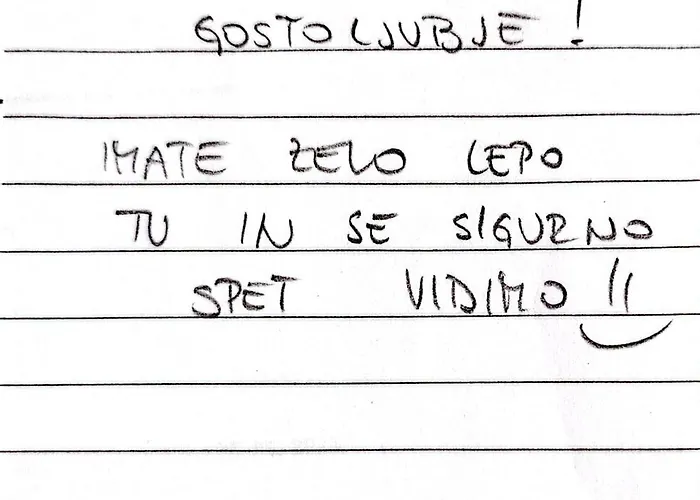 GOSTOLJUBJE!
IMATE ZELO LEPO
TU IN SE SIGURNO
SPET VIDIMO!!